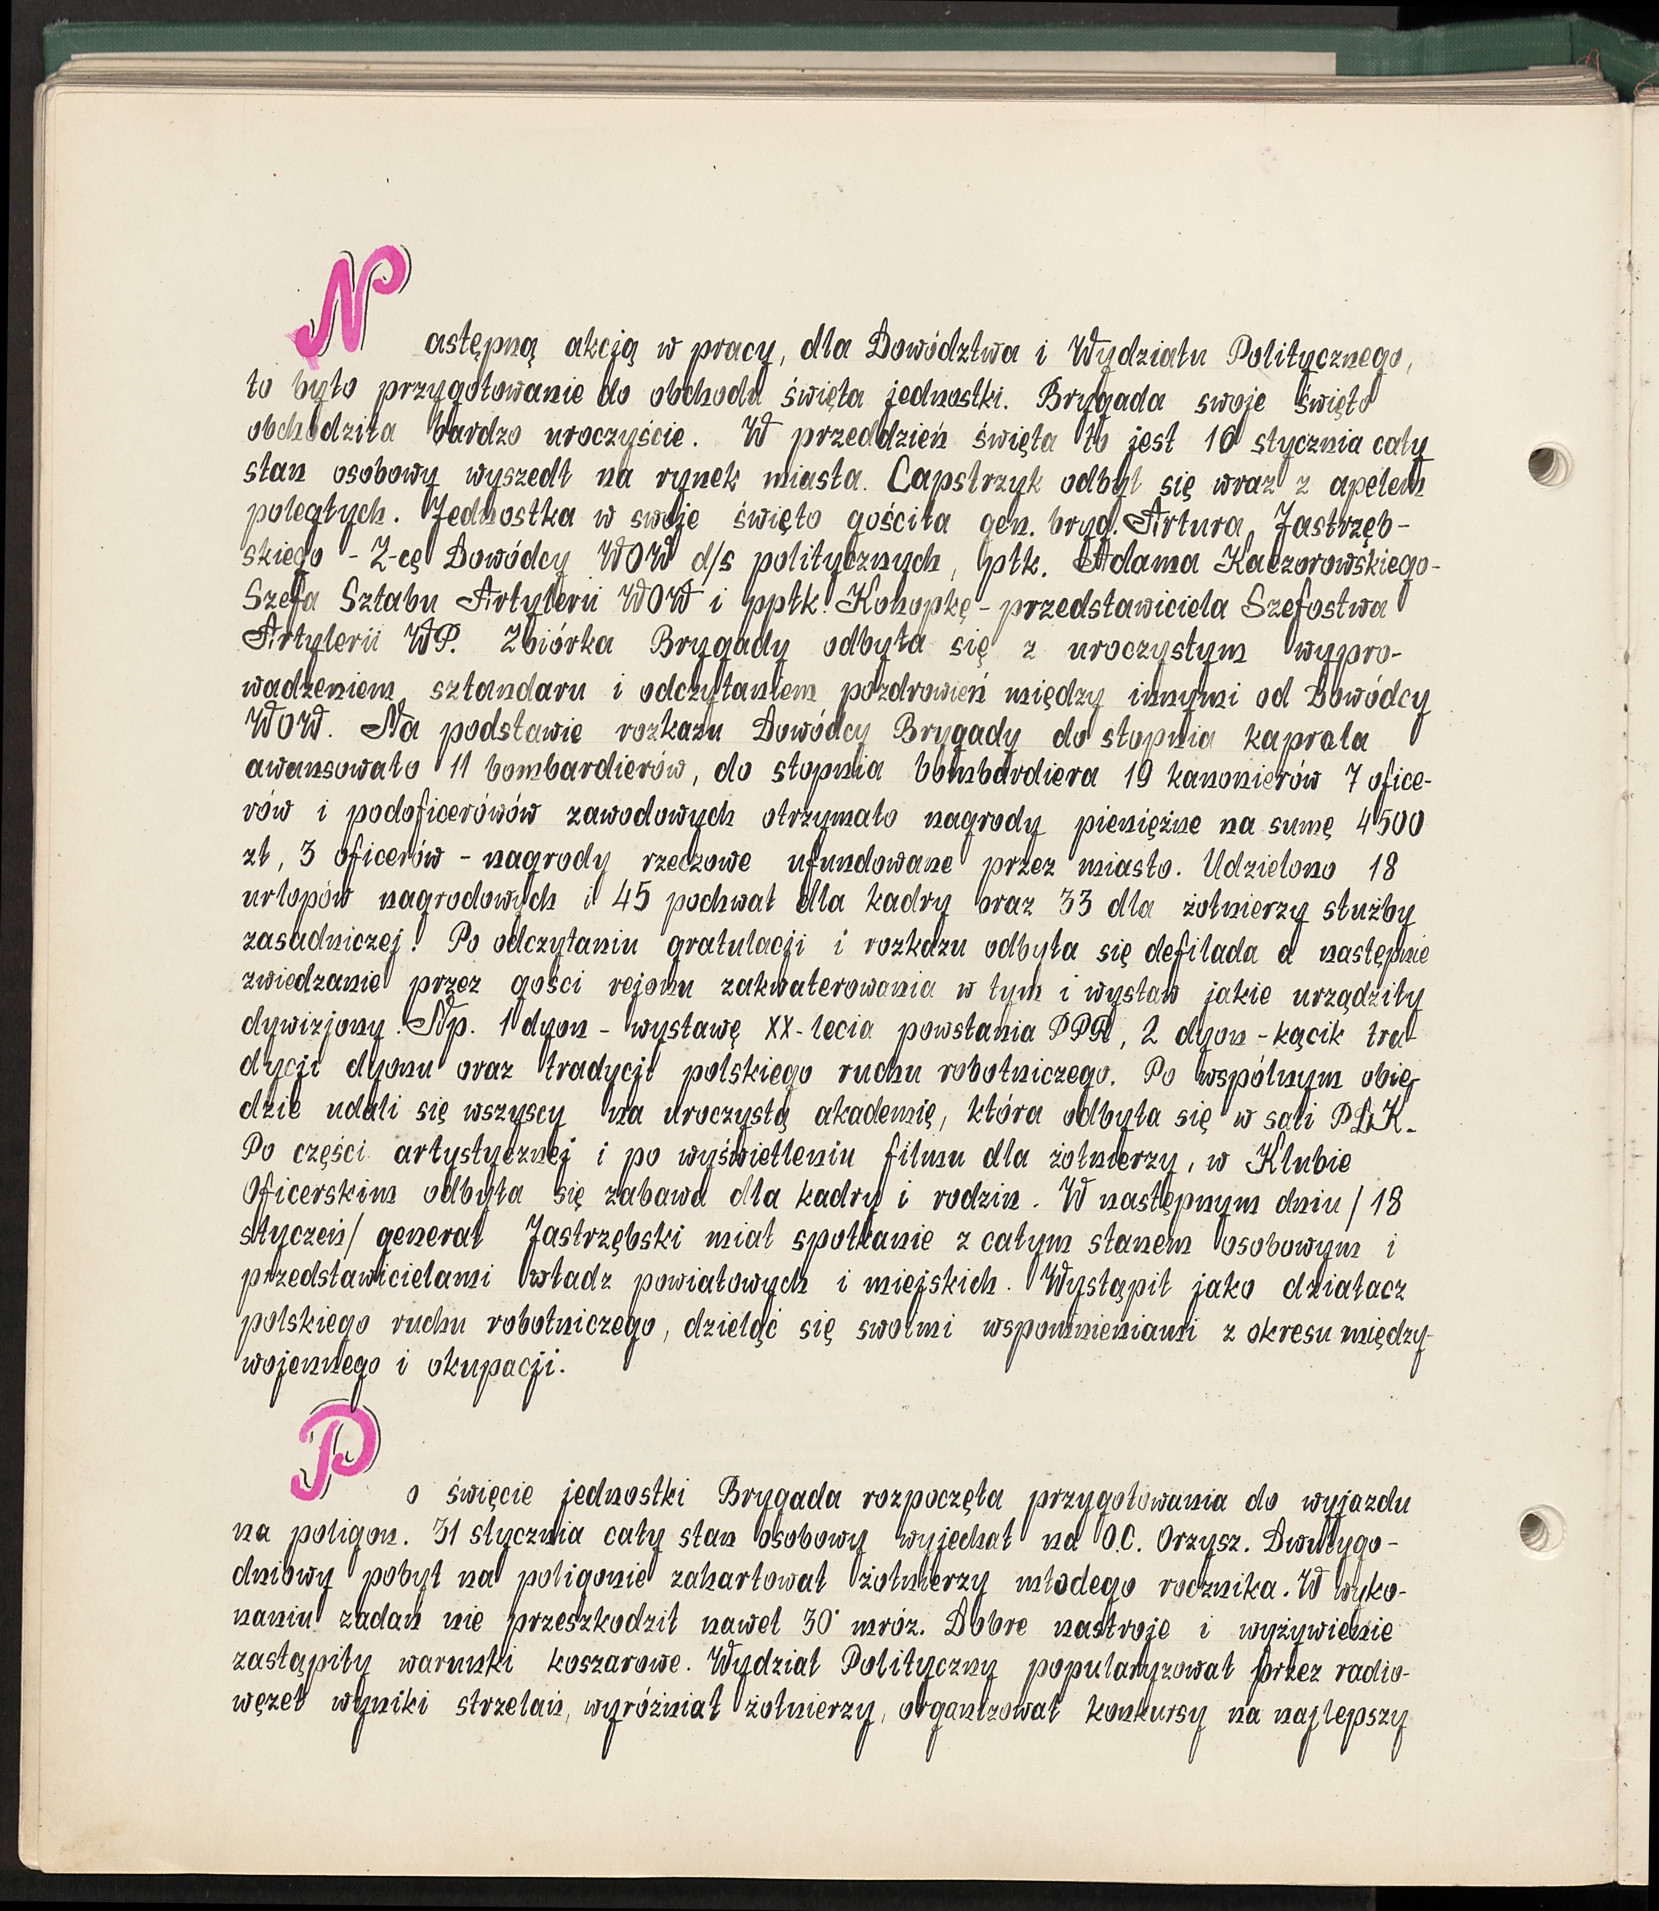 Następną akcją w pracy, dla Dowództwa i Wydziału Politycznego,
to było przygotowanie do obchodu święta jednostki. Brygada swoje święto
obchodziła bardzo uroczyście. W przeddzień święta to jest 16 stycznia cały
stan osobowy wyszedł na rynek miasta. Capstrzyk odbył się wraz z apelem
poległych. Jednostka w swoje święto gościła gen. bryg. Artura Jastrzęb-
skiego - Z-cę Dowódcy WOW d/s politycznych, płk. Adama Kaczorowskiego-
Szefa Sztabu Artylerii WOW i ppłk. Konopkę - przedstawiciela Szefostwa
Artylerii WP. Zbiórka Brygady odbyła się z uroczystym wypro-
wadzeniem sztandaru i odczytaniem pozdrowień między innymi od Dowódcy
WOW. Na podstawie rozkazu Dowódcy Brygady do stopnia kaprala
awansowało 11 bombardierów, do stopnia bombardiera 19 kanonierów 7 ofice-
rów i podoficerówów zawodowych otrzymało nagrody pieniężne na sumę 4500
zł, 3 oficerów - nagrody rzeczowe ufundowane przez miasto. Udzielono 18
urlopów nagrodowych i 45 pochwał dla kadry oraz 33 dla żołnierzy służby
zasadniczej. Po odczytaniu gratulacji i rozkazu odbyła się defilada a następnie
zwiedzanie przez gości rejonu zakwaterowania w tym i wystaw jakie urządziły
dywizjony. Np. 1 dyon - wystawę XX-lecia powstania PPR, 2 dyon - kącik tra-
dycji dyonu oraz tradycji polskiego ruchu robotniczego. Po wspólnym obie-
dzie udali się wszyscy na uroczystą akademię, która odbyła się w sali PDK.
Po części artystycznej i po wyświetleniu filmu dla żołnierzy, w Klubie
Oficerskim odbyła się zabawa dla kadry i rodzin. W następnym dniu /18
styczeń/ generał Jastrzębski miał spotkanie z całym stanem osobowym i
przedstawicielami władz powiatowych i miejskich. Wystąpił jako działacz
polskiego ruchu robotniczego, dzieląć się swoimi wspomnieniami z okresu między-
wojennego i okupacji.
Po święcie jednostki Brygada rozpoczęła przygotowania do wyjazdu
na poligon. 31 stycznia cały stan osobowy wyjechał na O.C. Orzysz. Dwutygo-
dniowy pobyt na poligonie zahartował żołnierzy młodego rocznika. W wyko-
naniu zadań nie przeszkodził nawet 30° mróz. Dobre nastroje i wyżywienie
zastąpiły warunki koszarowe. Wydział Polityczny popularyzował przez radio-
węzeł wyniki strzelań, wyróżniał żołnierzy, organizował konkursy na najlepszy